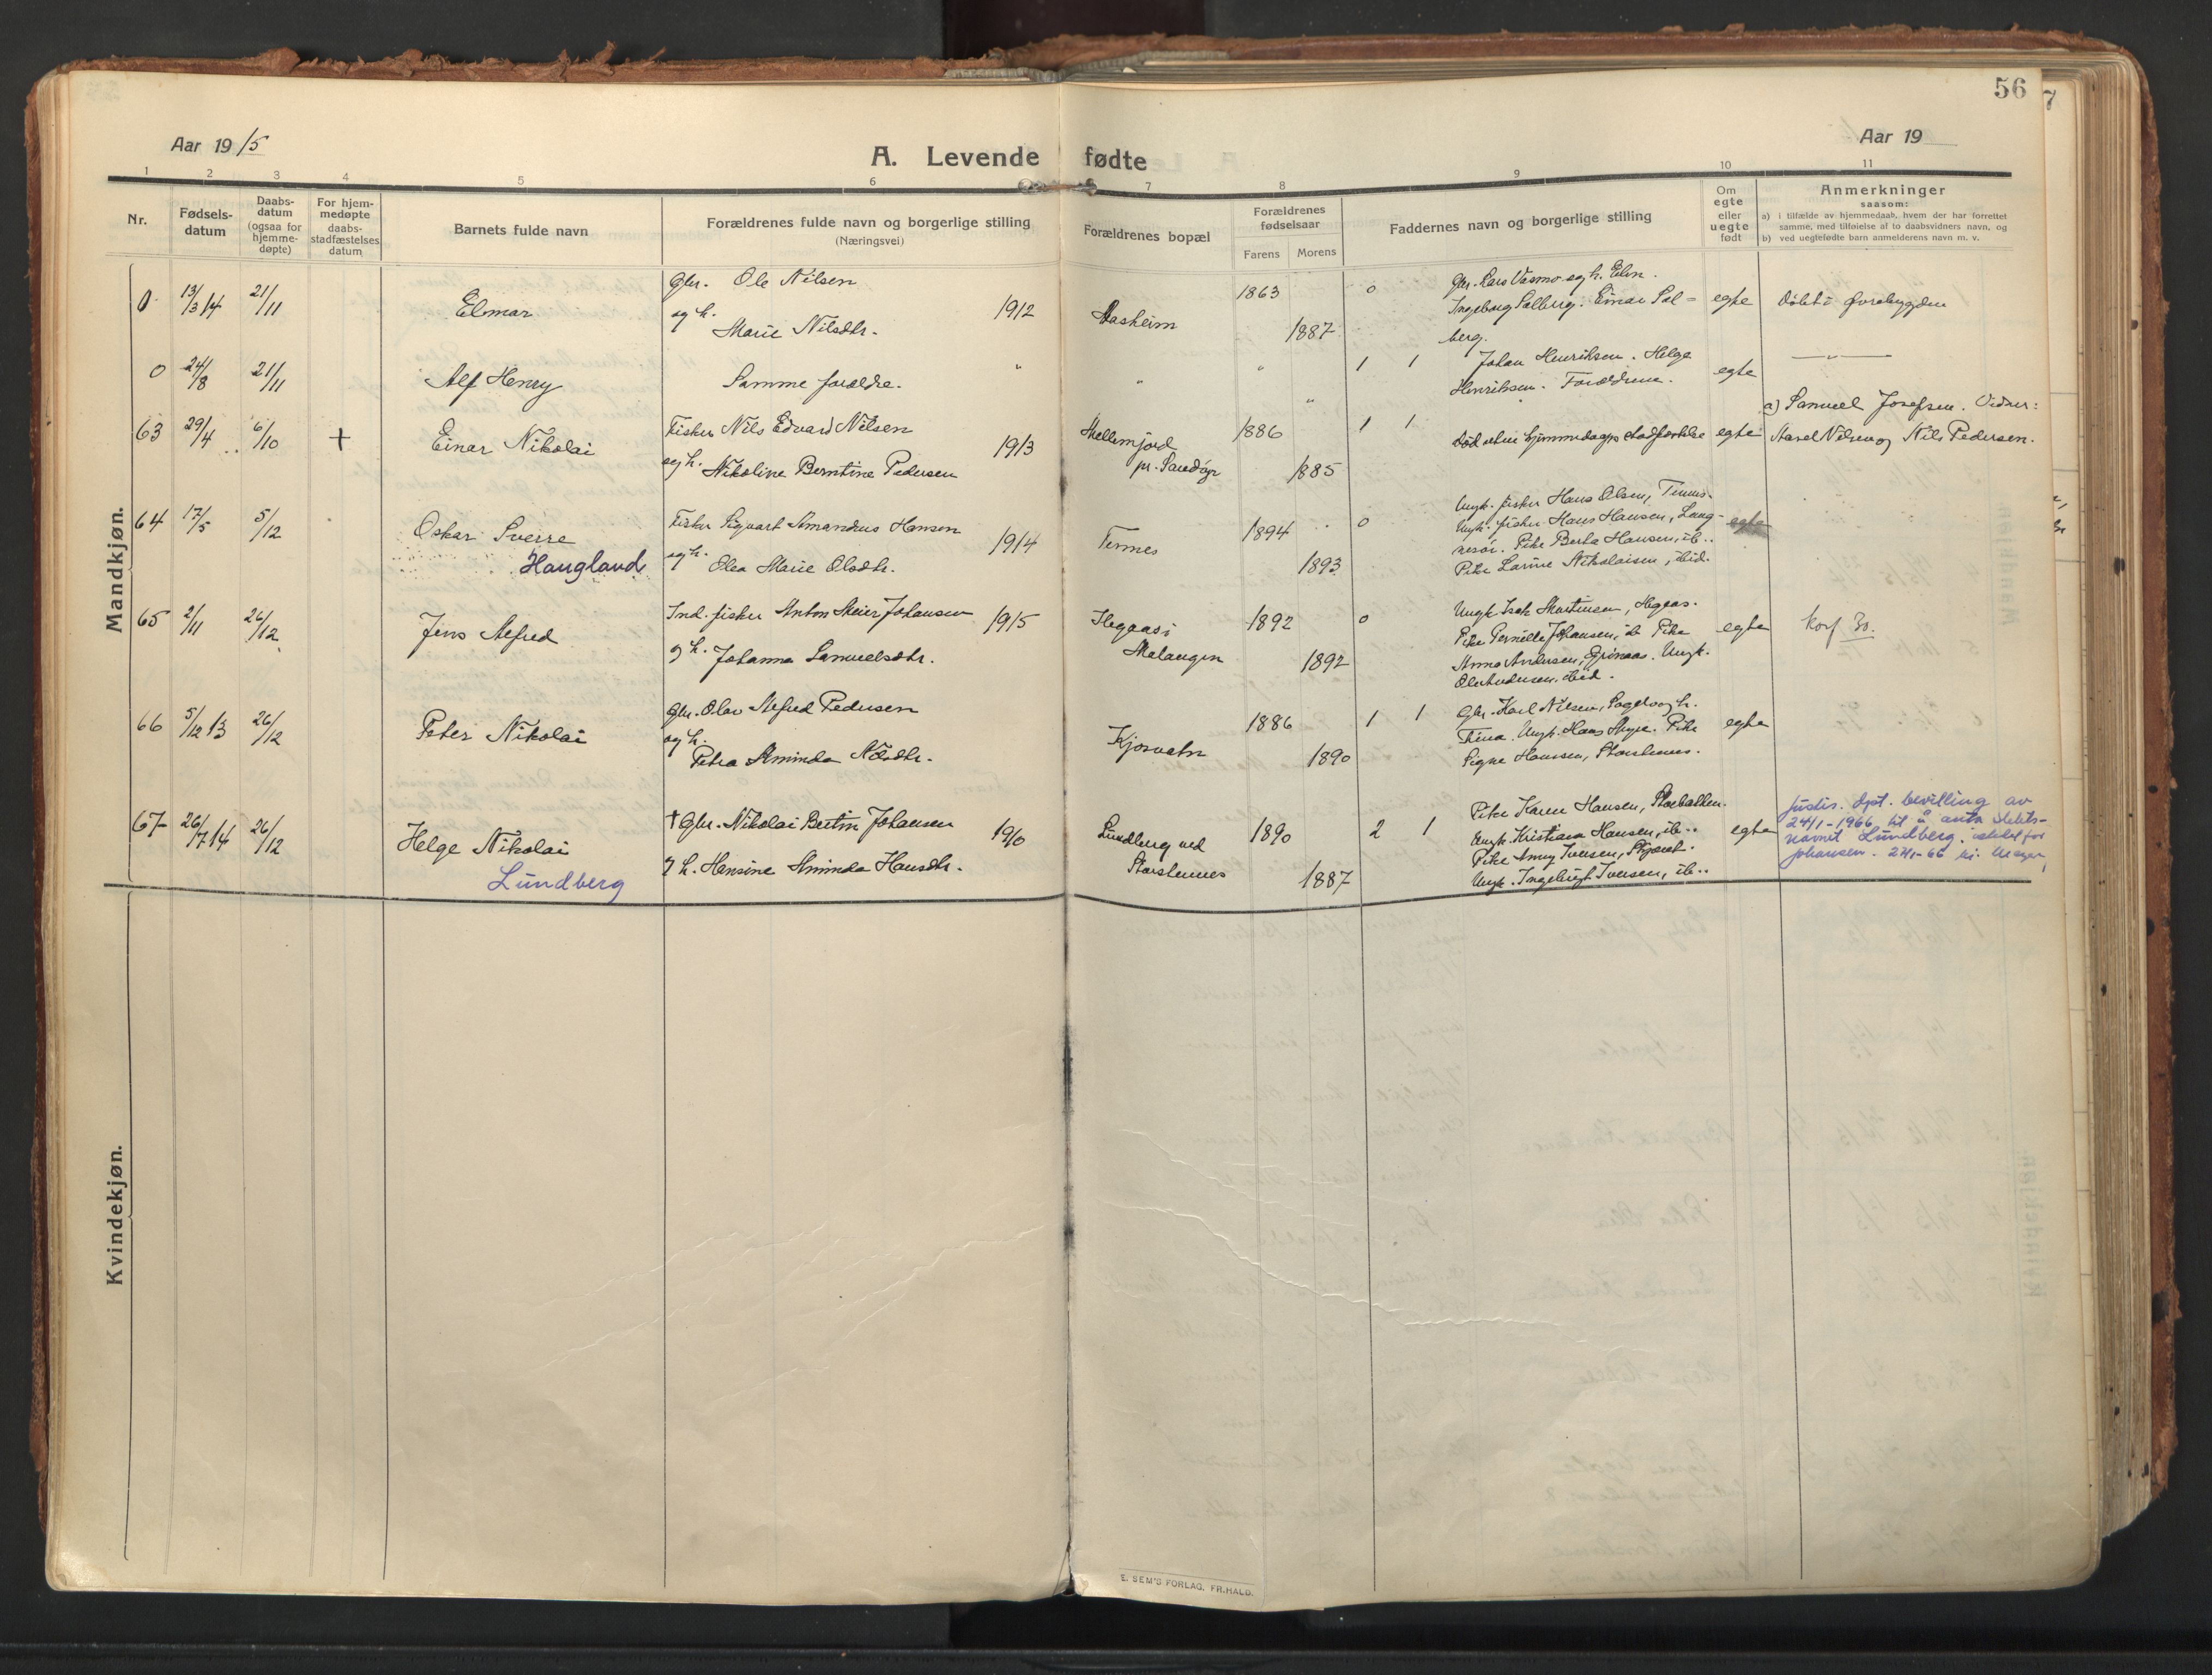 56
7
Aar 1915
A. Levende fødte
Aar 19
1 2 3 4 5 6 7 8 9 10 11
Nr.
Fødsels-
datum
Daabs-
datum
(ogsaa for
hjemme-
døpte)
For hjem-
medøpte
daabs-
stadfæstelses
datum
Barnets fulde navn
Forældrenes fulde navn og borgerlige stilling
(Næringsvei)
Forældrenes bopæl
Forældrenes
fødselsaar
Farens Morens
Faddernes navn og borgerlige stilling
Om
egte
eller
uegte
født
Anmerkninger
saasom:
a) i tilfælde av hjemmedaab, hvem der har forrettet
samme, med tilføielse af to daabsvidners navn, og
b) ved uegtefødte barn anmelderens navn m. v.
Mandkjøn.
0 13/3 14 21/11 Elmar
Gbr. Ole Nilsen
og h. 1912
Marie Nilsdtr.
Aasheim
1863
1887
0
Gbr. Lars Vasmo og h. Elen.
Ingeborg Solberg. Einar Sol-
berg.
egte
Døbt i Øvrebygden
0 24/8 21/11 Alf Henry
Samme forældre. "
" " "
1 1
Johan Henriksen. Helga
Henriksen. Forældrene.
egte
— " —
63 29/4 6/10 + Einar Nikolai
Fisker Nils Edvard Nilsen
1913
og h. Nikoline Berntine Pedersen
Mellemjord
pr. Sandøyr
1886
1885
1 1
Død uten hjemmedaaps stadfæstelse
egte
a) Samuel Josefsen. Vidner:
Nilsen og Nils Pedersen.
64 17/5 5/12 Oskar Sverre
Haugland
Fisker Sigvart Amandus Hansen
1914
og h. Olea Marie Olsdtr.
Tennes
1894
1893
0
Ungk. fisker Hans Olsen, Tennes.
Ungk. fisker Hans Hansen, Lang-
nesør. Pike Berta Hansen, ib..
Pike Larine Nikolaisen, ibid.
egte
65 2/11 26/12 Jens Alfred
Ind. fisker Anton Meier Johansen
1915
og h. Johanna Samuelsdtr.
Hegaas i
Malangen
1892
1892
0
Ungk Isak Martinsen, Hegaas.
Pike Pernille Johansen, ib Pike
Anna Andersen, Grønaas. Ungk.
Ole Andersen. ibid.
egte
Konf 30.
66 5/12 13 26/12 Peter Nikolai
Gbr. Olav Alfred Pedersen
og h.
Petra Aminda Nilsdtr.
Kjosvatn
1886
1890
1 1
Gbr. Karl Nilsen, Sagelv og h.
Trina. Ungk. Hans Myre. Pike
Signe Hansen, Storstennes.
egte
67 26/7 14 26/12 Helge Nikolai
Lundberg
† Gbr. Nikolai Bertin Johansen
1910
og h. Hansine Aminda Hansdtr.
Lundberg ved
Storstennes
1890
1887
2 1
Pike Karen Hansen, Storbakken.
Ungk. Kristian Hansen, ib..
Pike Anny Iversen, Skjæret.
Ungk. Ingebrigt Iversen, ib..
egte
Justis. dpt. bevilling av
24/1-1966 til å anta slekts-
navnet Lundberg istedet for
Johansen. 27/1-66
Kvindekjøn.
E. SEM'S FORLAG, FR.HALD.